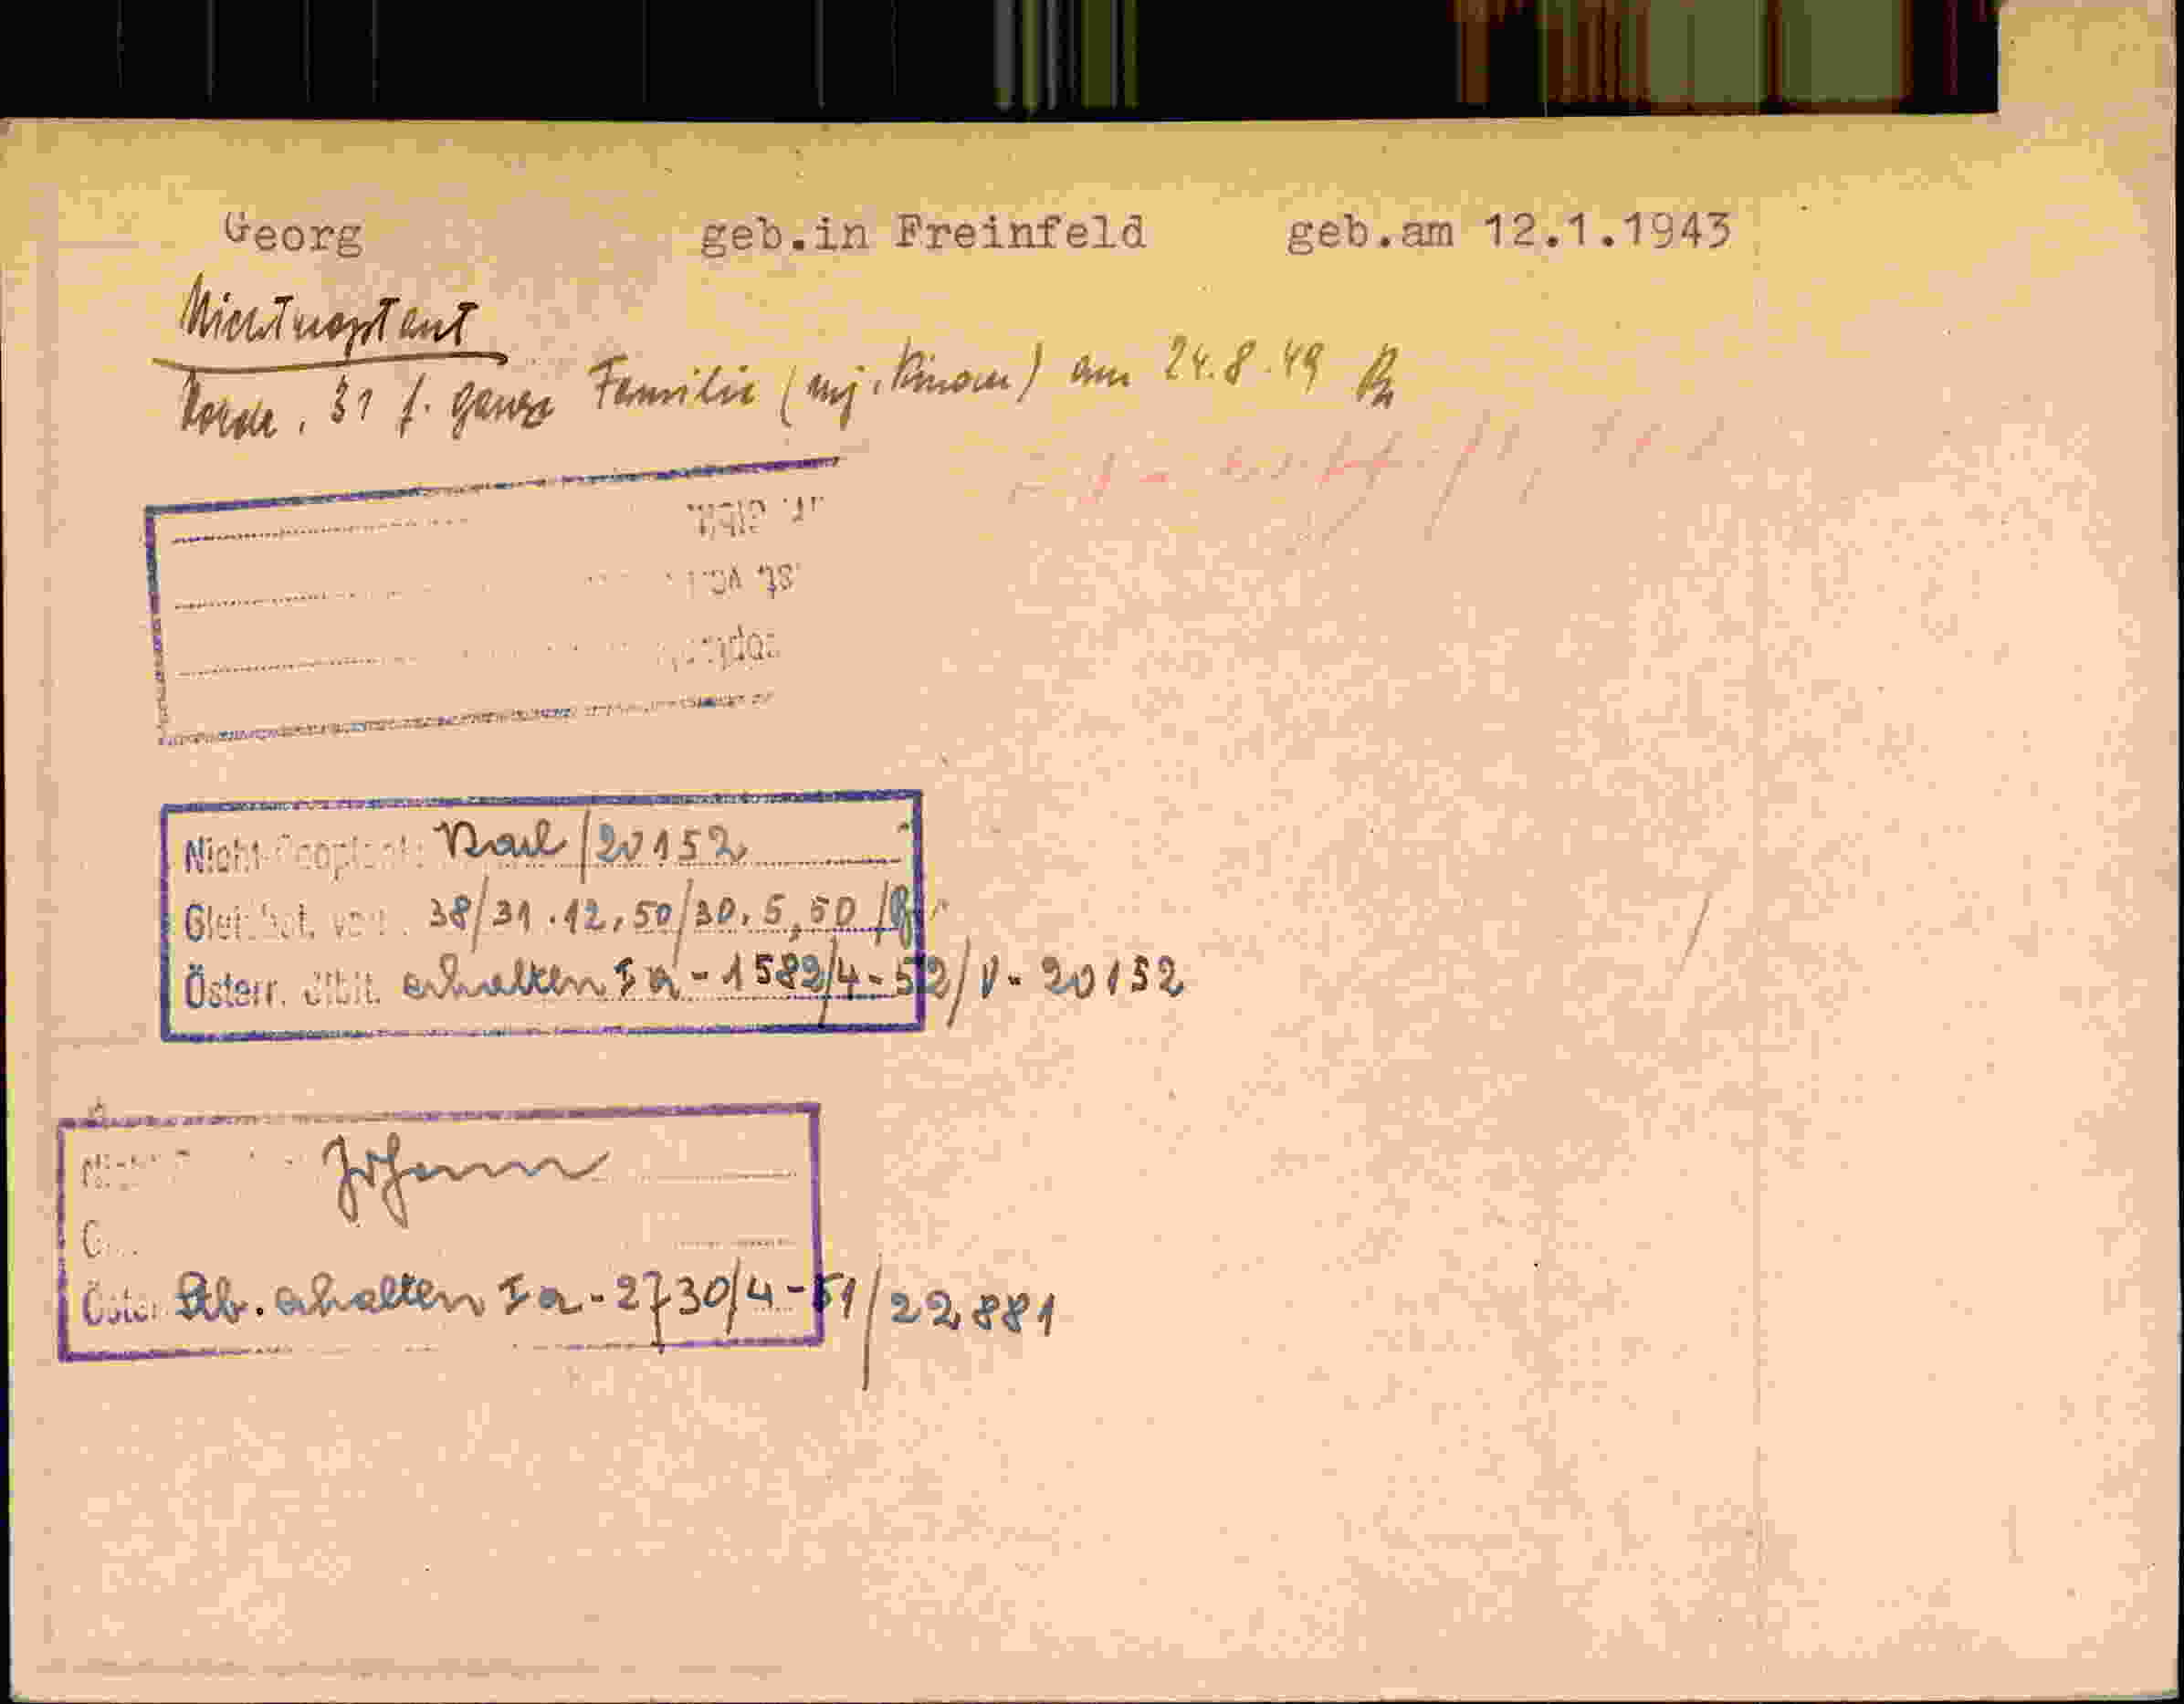 Georg geb.in Freinfeld geb.am 12.1.1943
Nichtreoptant
31 f. ganze Familie (mj. Kinder) am 24.8.49
Nicht-Reoptant: Karl/20152
Gleichst. von: 38/31.12,50/30.5,50
Österr. Stbü. erhalten I a - 1582/4-52/V-20152
Johann
Öster Stb. erhalten I a - 2730/4-51/22881